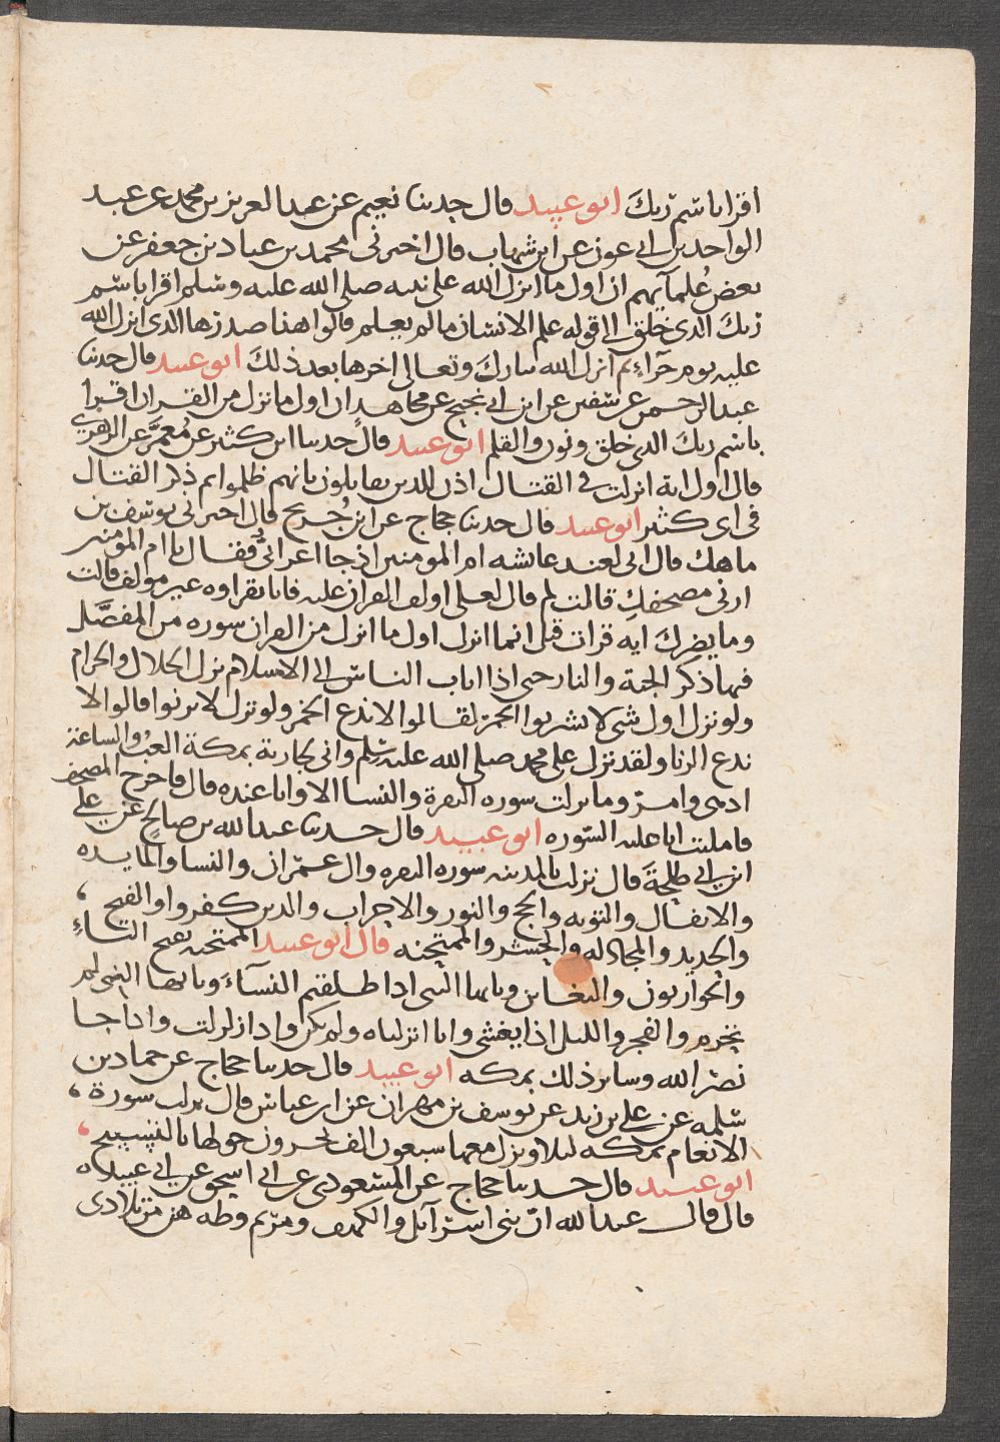 اقرا باسم ربك ابو عبيد قال حدثنا نعيم عن عبد العزيز بن محمد عن عبد
الواحد بن ابي عون عن ابن شهاب قال اخبرني محمد بن عباد بن جعفر عن
بعض علمآيهم ان اول ما انزل الله على نبيه صلى الله عليه وسلم اقرا باسم
ربك الذي خلق الى قوله علم الانسان ما لم يعلم قالوا هذا صدرها الذي انزل الله
عليه يوم حرآء ثم انزل الله تبارك وتعالى اخرها بعد ذلك ابو عبيد قال حدثنا
عبد الرحمن عن سفين عن ابن ابي نجيح عن مجاهد ان اول ما نزل من القران اقرا
باسم ربك الذي خلق ونون والقلم ابو عبيد قال حدثنا ابن كثير عن معمر عن الزهري
قال اول اية انزلت في القتال اذن للذين يقاتلون بانهم ظلموا ثم ذكر القتال
في اي كثير ابو عبيد قال حدثنا حجاج عن ابن جريج قال اخبرني يوسف بن
ماهك قال اني لعند عائشه ام المومنين اذ جا اعرابي فقال يا ام المومنين
ارني مصحفك قالت لم قال لعلي اولف القران عليه فانا نقراوه غير مولف قالت
وما يضرك ايه قرات قبل انما انزل اول ما انزل من القران سوره من المفصل
فيها ذكر الجنة والنار حتى اذا اناب الناس الى الاسلام نزل الحلال والحرام
ولو نزل اول شي لا تشربوا الخمر لقالوا لا ندع الخمر ولو نزل لا تزنوا قالوا لا
ندع الزنا ولقد نزل على محمد صلى الله عليه وسلم واني لجارية بمكة العب والساعة
ادهى وامر وما نزلت سوره البقرة والنسا الا وانا عنده قال فاخرج المصحف
فاملت انا عليه السوره ابو عبيد قال حدثنا عبد الله بن صالح عن علي
ابن ابي طلحة قال نزلت بالمدينه سوره البقره وال عمران والنسا والمايده
والانفال والتوبه والحج والنور والاحزاب والذين كفروا والفتح
والحديد والمجادله والحشر والممتحنه قال ابو عبيد الممتحنه بفتح التاء
والحواريون والتغابن ويايها النبي اذا طلقتم النسآء ويايها النبي لم
تحرم والفجر والليل اذا يغشى وانا انزلناه ولم يكن واذا زلزلت واذا جا
نصر الله وسائر ذلك بمكه ابو عبيد قال حدثنا حجاج عن حماد بن
سلمه عن علي بن زيد عن يوسف بن مهران عن ابن عباس قال نزلت سورة
الانعام بمكه ليلا ونزل معها سبعون الف يجرون حولها بالتسبيح
ابو عبيد قال حدثنا حجاج عن المسعودي عن ابي اسحق عن ابي عبيده
قال قال عبد الله ان بني اسرآئل والكهف ومريم وطه هن من تلادي